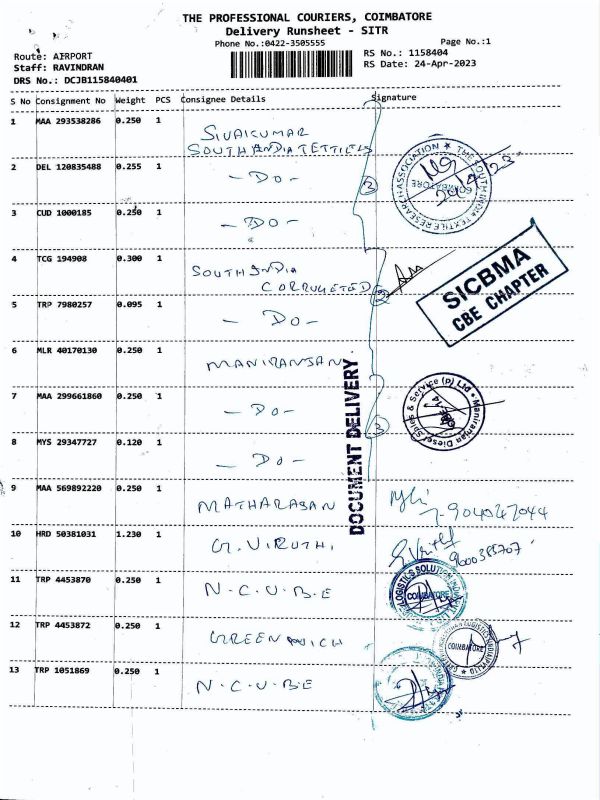 THE PROFESSIONAL COURIERS, COIMBATORE
Delivery Runsheet - SITR
Phone No.:0422-3505555
Page No.:1
Route: AIRPORT
RS No.: 1158404
Staff: RAVINDRAN
RS Date: 24-Apr-2023
DRS No.: DCJB115840401
S No Consignment No Weight PCS Consignee Details Signature
1 MAA 293538286 0.250 1
SIVAICUMAR
SOUTH INDIA TETTILES
2 DEL 120835488 0.255 1 - DO -
3 CUD 1000185 0.250 1 - DO -
4 TCG 194908 0.300 1 SOUTH INDIA
CORRUGETED
5 TRP 7980257 0.095 1 - DO -
6 MLR 40170130 0.250 1 MANIRANJAN
7 MAA 299661860 0.250 1 - DO -
8 MYS 29347727 0.120 1 - DO -
9 MAA 569892220 0.250 1 MATHARASAN
10 HRD 50381031 1.230 1 G. VIRUTHI
11 TRP 4453870 0.250 1 N.C.U.B.E
12 TRP 4453872 0.250 1 GREENWICH
13 TRP 1051869 0.250 1 N.C.U.B.E
2
2
3
DOCUMENT DELIVERY
THE SOUTH INDIA TEXTILE RESEARCH ASSOCIATION
COIMBATORE
SICBMA
CBE CHAPTER
Maniranjan Diesel Sales & Service (p) Ltd
9600385707
LOGISTICS SOLUTION
COIMBATORE
COIMBATORE